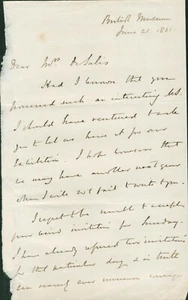 British Museum
June 21. 1881
Dear Mrs de Salis
Had I known that you
possessed such an interesting lot
I should have ventured to ask
you to let us have it for our
Exhibition. I hope however that
we may have another next year
when I will not fail to write to you.
I regret I am unable to accept
your kind invitation for Sunday.
I have already refused two invitations
for that particular day, & in truth